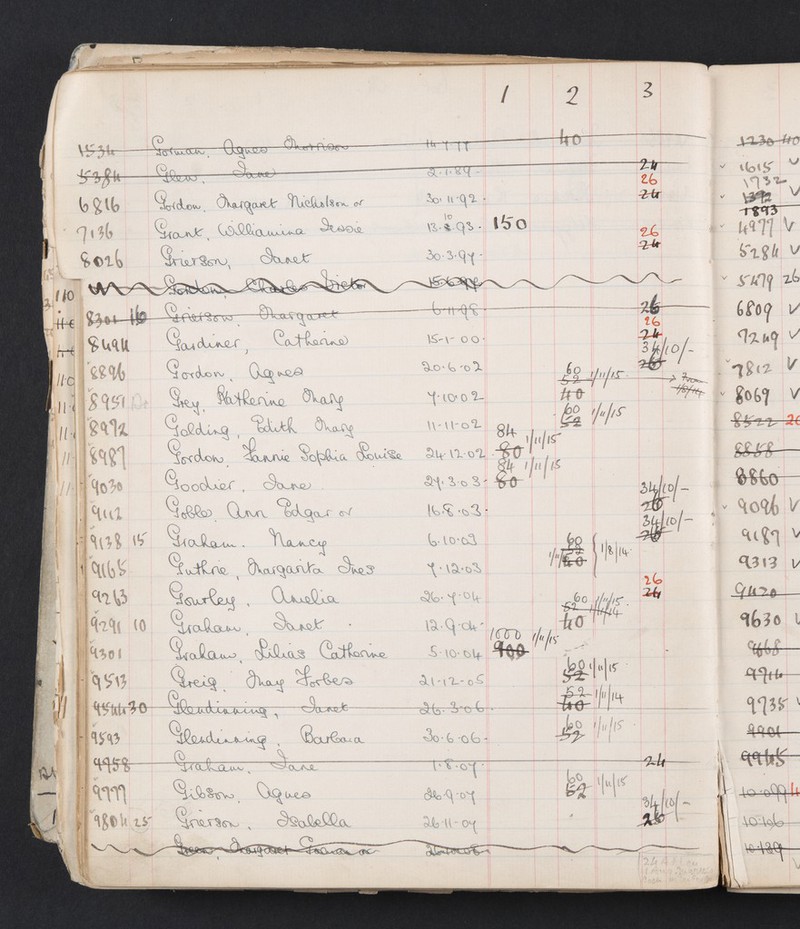 1 2 3
1534 Gorman, Agnes Morrison 40
5384 Glen, Jane 2.1.89 24
26
6816 Gordon, Margaret Nicholson or 30.11.92 24
7136 Grant, Williamina Jessie 13. 10 .93 150 26
8026 Grierson, Janet 30.3.94 24
Gordon, Charles
8301 16 Grierson, Margaret 6.11.98 26
26
8494 Gardiner, Catherine 15.1.00 24
34/10/-
8896 Gordon, Agnes 20.6.02 26
60 1/11/15
52
8951 Grey, Katherine Mary 7.10.02 40
60 1/11/15
8972 Golding, Edith Mary 11.11.02 52
84 1/11/15
8987 Gordon, Fannie Sophia Louise 24.12.02 80
84 1/11/15
9030 Goodier, Jane 24.3.03 80
34/10/-
9112 Goble, Ann Edgar or 16.8.03 26
34/10/-
9138 15 Graham, Nancy 6.10.03 26
60
52 1/8/14
9165 Guthrie, Margarita Ines 7.12.03 40
26
9263 Gourley, Amelia 26.7.04 24
60 1/11/15
52
9291 10 Graham, Janet 12.9.04 40
1000 1/11/15
9301 Graham, Lilias Catherine 5.10.04 900
60 1/11/15
9513 Greig, May Forbes 21.12.05 52
52 1/11/14
9544 30 Glendinning, Janet 26.3.06 40
60 1/11/15
9593 Glendinning, Barbara 30.6.06 52
9758 Graham, Jane 1.8.07 24
60 1/11/15
9777 Gibson, Agnes 26.9.07 52
34/10/-
9804 25 Grierson, Isabella 26.11.07 26
Green, Margaret
1230 40
1615 V
1732
1893
4977 V
5284 V
5479 26
6809 V
7249 V
7812 V
8069 V
8522
8858
8860
9096 V
9187 V
9313 V
9420
9630
9668
9714
9735
9901
9965
10099
10106
10189